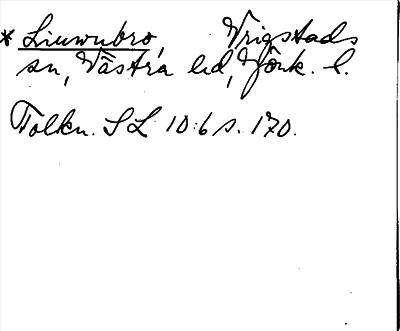 * Liuwubro, Vrigstads
sn, Västra hd, Jönk. l.
Tolkn. SL 10:6 s. 170.